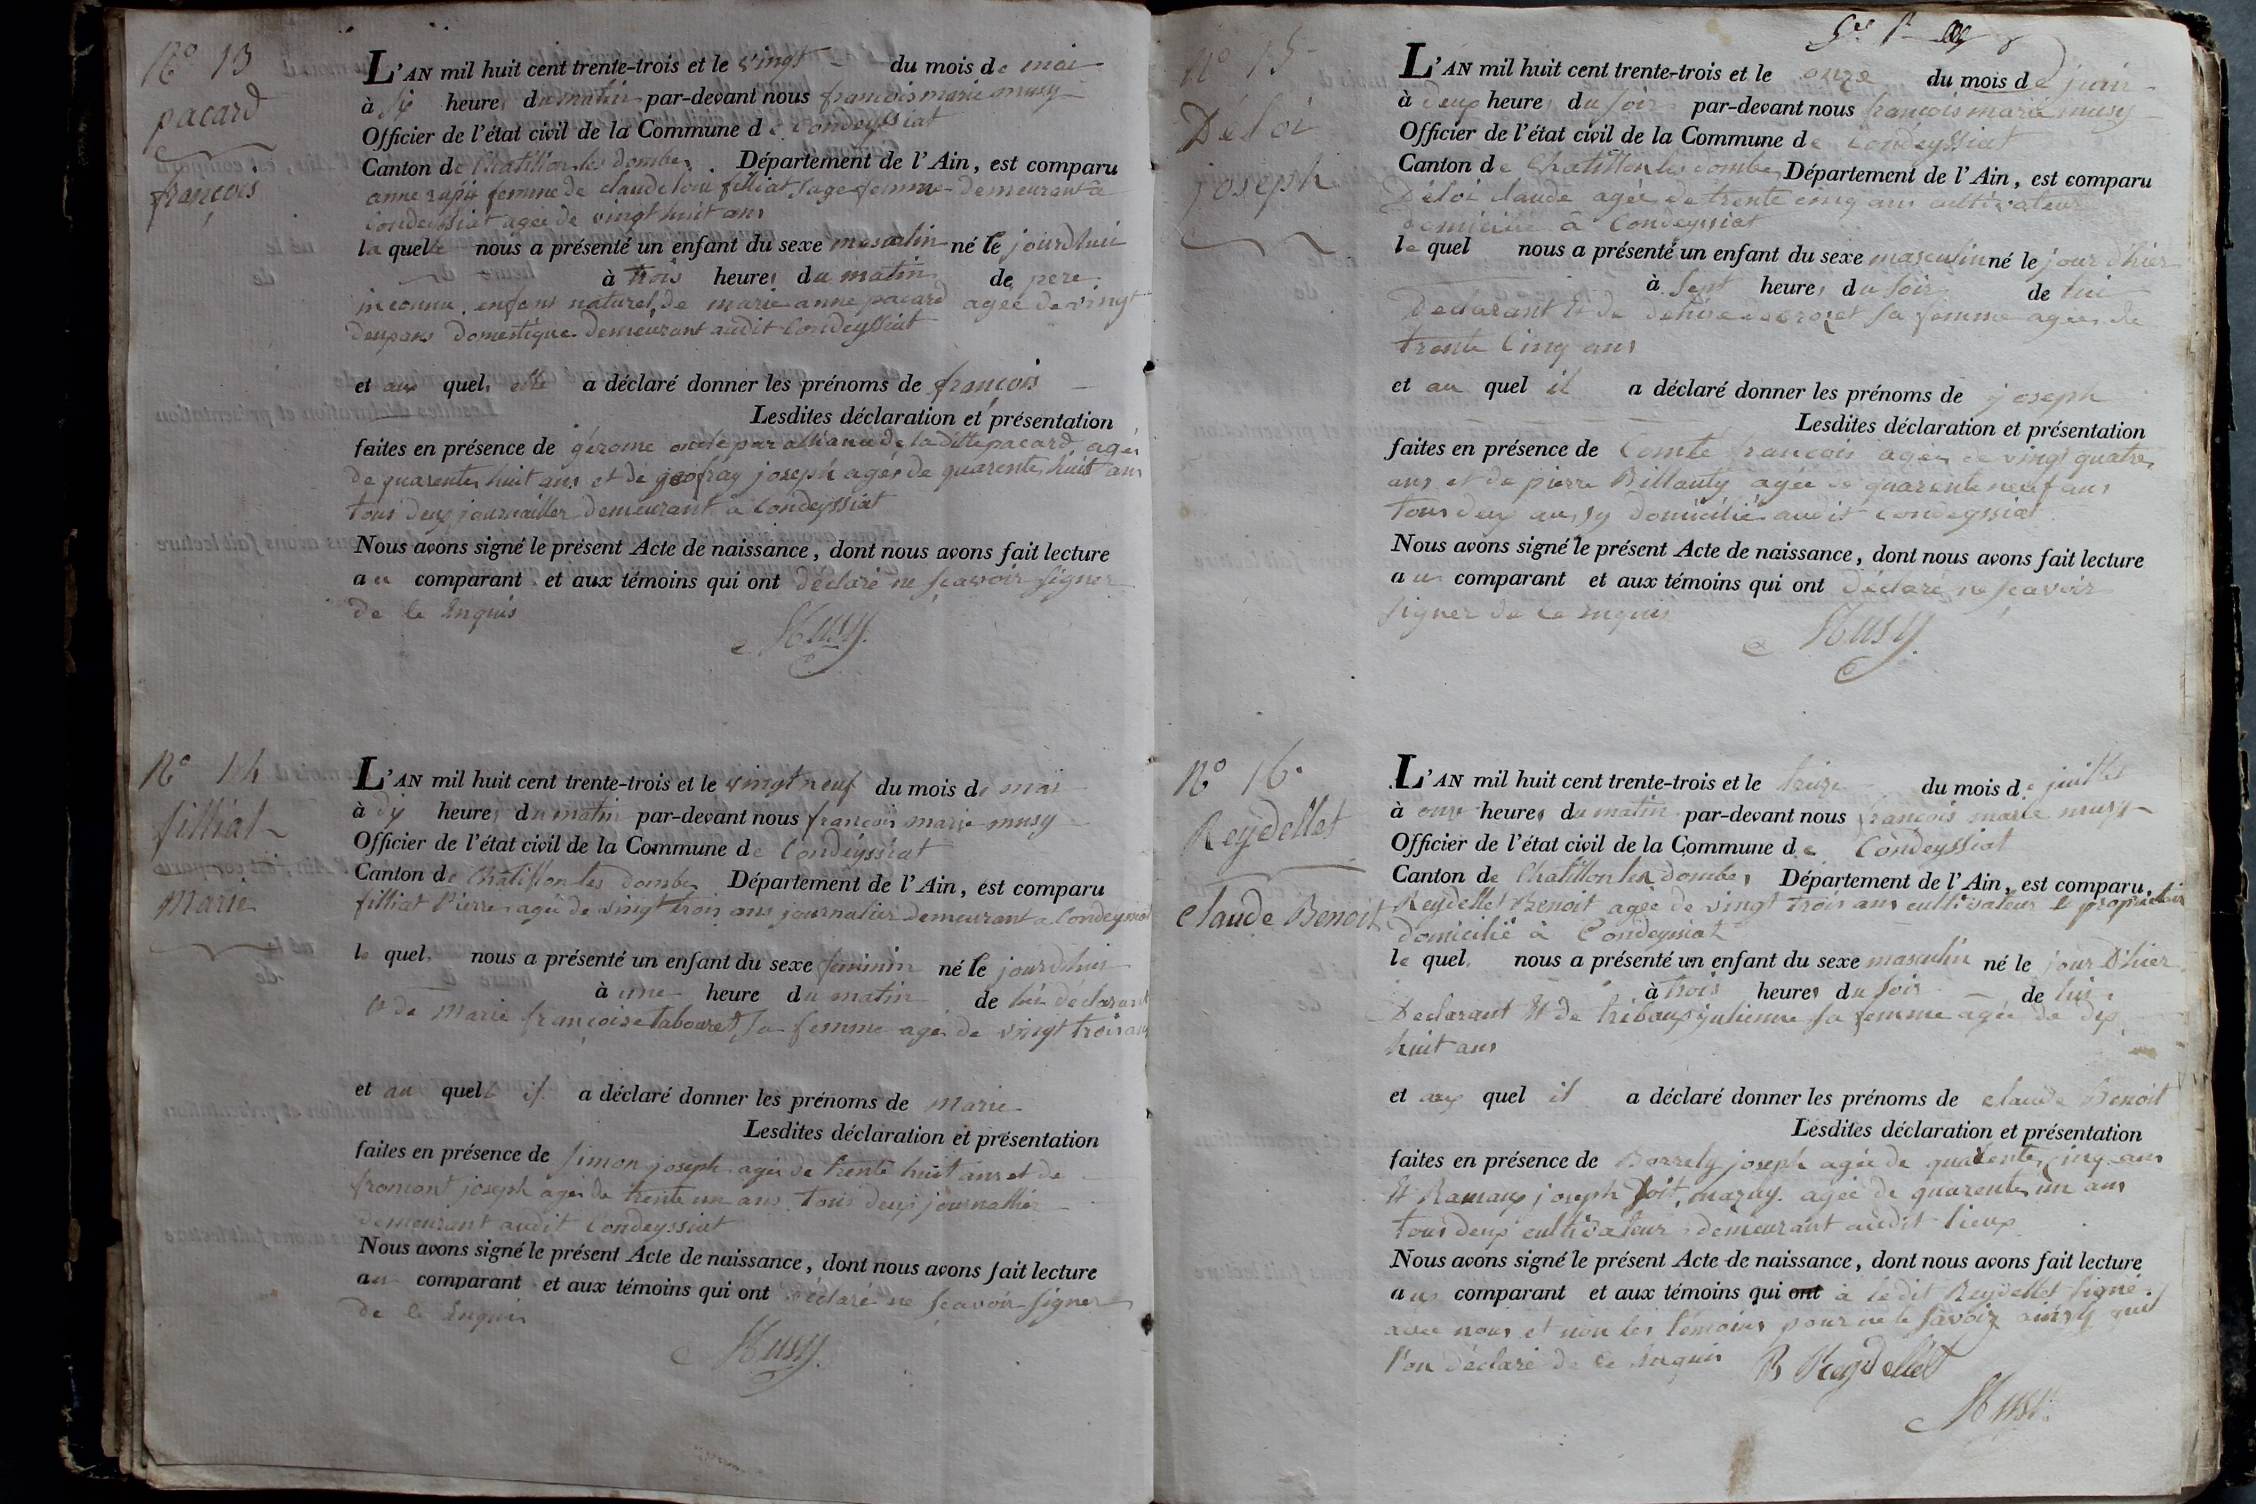 N° 13
pacard
françois
L'AN mil huit cent trente-trois et le vingt du mois de mai
à six heures du matin par-devant nous françois marie musy
Officier de l'état civil de la Commune de Condeyssiat
Canton de Chatillon les dombes Département de l'Ain, est comparu
anne femme de claude filliat, sage femme demeurant à
Condeyssiat agée de vingt huit ans
la quelle nous a présenté un enfant du sexe masculin né le jourdhui
à trois heures du matin de pere
inconnu, enfans naturel, de marie anne pacard agée de vingt
deux ans domestique demeurant audit Condeyssiat
et aux quel elle a déclaré donner les prénoms de françois
Lesdites déclaration et présentation
faites en présence de gérome oncle par alliance de la ditte pacard agés
de quarente huit ans et de geofray joseph agés de quarente huit ans
tous deux journailler demeurant à Condeyssiat
Nous avons signé le présent Acte de naissance, dont nous avons fait lecture
au comparant et aux témoins qui ont déclaré ne sçavoir signer
de ce Enquis
Musy
N° 14
filliat
Marie
L'AN mil huit cent trente-trois et le vingt neuf du mois de mai
à dix heures du matin par-devant nous françois marie musy
Officier de l'état civil de la Commune de Condeyssiat
Canton de Chatillon les dombes Département de l'Ain, est comparu
filliat Pierre agée de vingt trois ans journalier demeurant a Condeyssiat
le quel nous a présenté un enfant du sexe feminin né le jourdhui
à une heure du matin de lui déclarant
et de Marie françoise tabouret sa femme agés de vingt trois ans
et au quel il a déclaré donner les prénoms de Marie
Lesdites déclaration et présentation
faites en présence de simon joseph agés de trente huit ans et de
fromont joseph agés de trente un ans tous deux journallier
demeurant audit Condeyssiat
Nous avons signé le présent Acte de naissance, dont nous avons fait lecture
au comparant et aux témoins qui ont déclaré ne sçavoir signer
de ce Enquis
Musy
N° 15
Déloi
joseph
L'AN mil huit cent trente-trois et le onze du mois de juin
à deux heures du soir par-devant nous françois marie musy
Officier de l'état civil de la Commune de Condeyssiat
Canton de Chatillon les dombes Département de l'Ain, est comparu
Déloi claude agée de trente cinq ans cultivateur
domicilié à Condeyssiat
le quel nous a présenté un enfant du sexe masculin né le jour d'hier
à sept heures du soir de lui
Déclarant et de sa femme agée de
trente cinq ans
et au quel il a déclaré donner les prénoms de joseph
Lesdites déclaration et présentation
faites en présence de Comte françois agée de vingt quatre
ans et de pierre Billauty agée de quarente neuf ans
tous deux aussy domicilié audit Condeyssiat
Nous avons signé le présent Acte de naissance, dont nous avons fait lecture
au comparant et aux témoins qui ont déclaré ne sçavoir
signer de ce enquis
Musy
N° 16
Reydellet
Claude Benoit
L'AN mil huit cent trente-trois et le treize du mois de juillet
à onze heures du matin par-devant nous françois marie musy
Officier de l'état civil de la Commune de Condeyssiat
Canton de Chatillon les dombes Département de l'Ain, est comparu
Reydellet Benoit agée de vingt trois ans cultivateur et propriétaire
domicilié à Condeyssiat
le quel nous a présenté un enfant du sexe masculin né le jour D'hier
à trois heures du soir de lui
Déclarant et de julienne sa femme agée de dix
huit ans
et aux quel il a déclaré donner les prénoms de claude Benoit
Lesdites déclaration et présentation
faites en présence de Borrely joseph agée de quarente cinq ans
et Ramaux joseph agée de quarente un ans
tous deux cultivateur demeurant audit lieux
Nous avons signé le présent Acte de naissance, dont nous avons fait lecture
aux comparant et aux témoins qui ont à ledit Reydellet signé
avec nous et non les témoins pour ne le savoir ainsy quil
l'on déclaré de ce Enquis B Reydellet
Musy